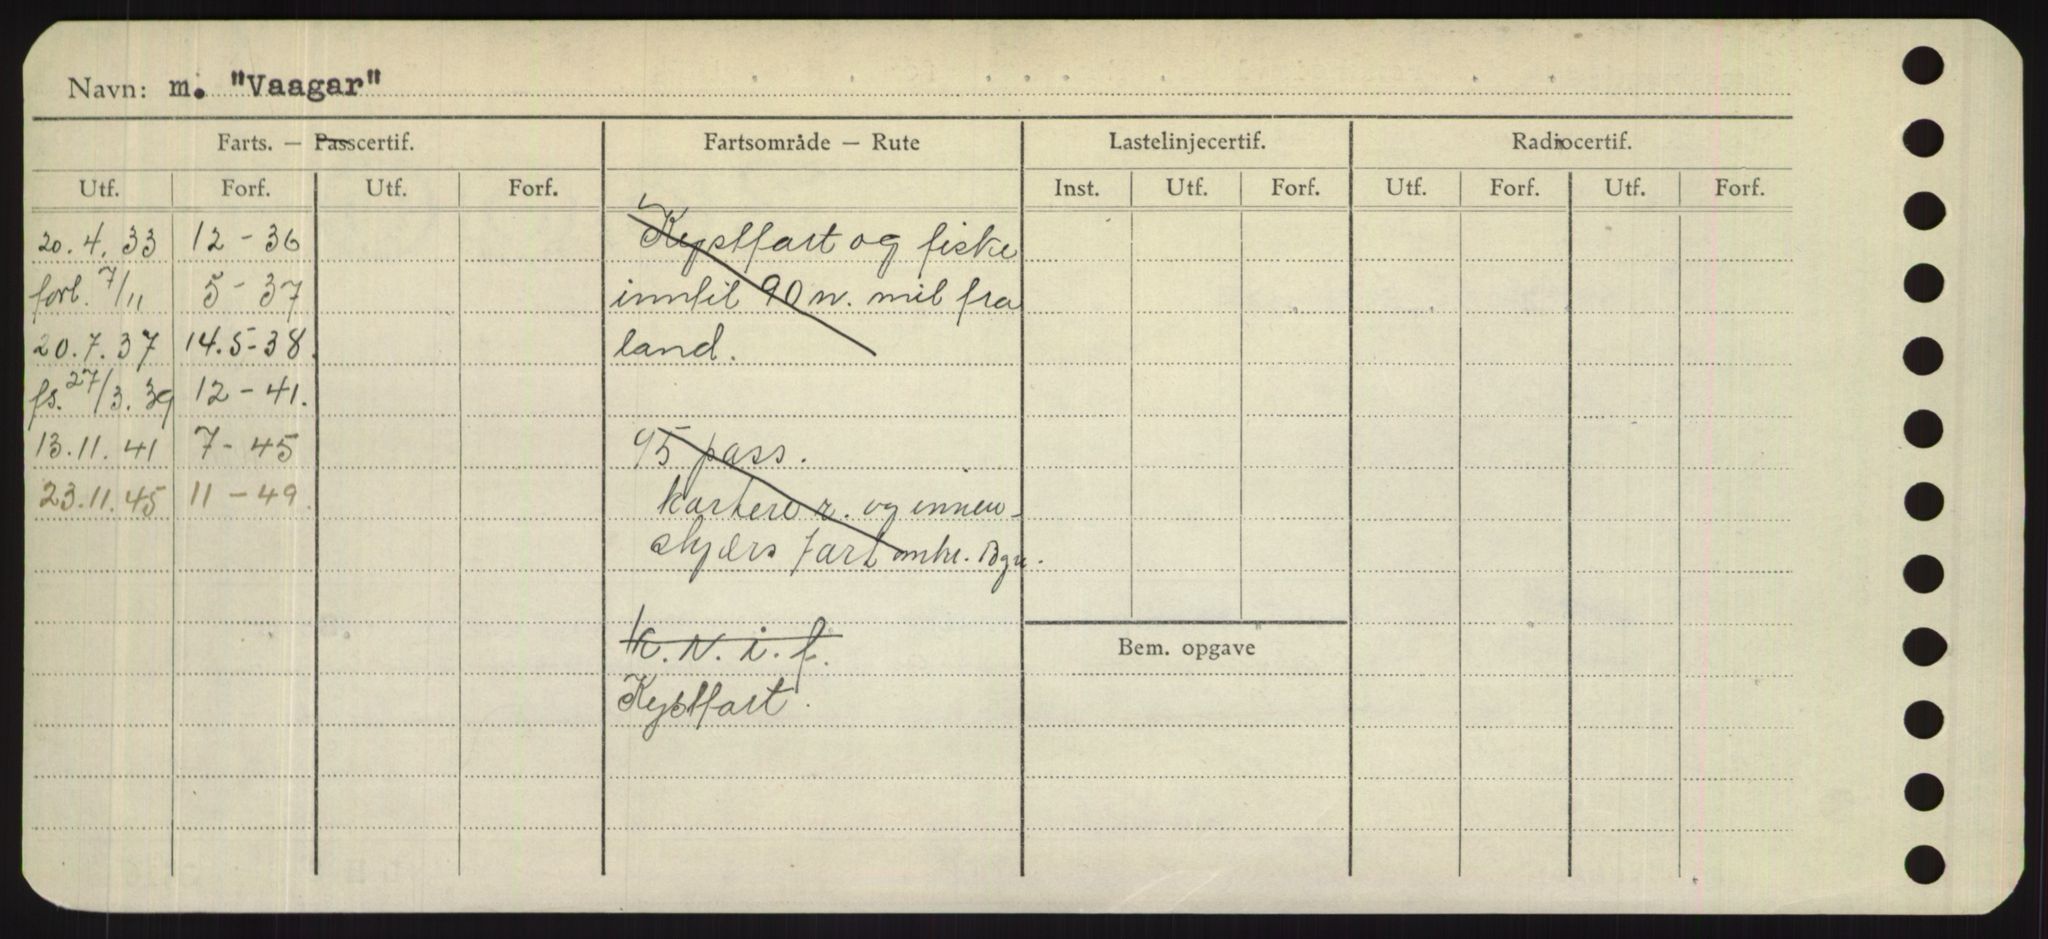 Navn: m. "Vaagar"
Farts. — Passcertif. Fartsområde — Rute Lastelinjecertif. Radiocertif.
Utf. Forf. Utf. Forf. Inst. Utf. Forf. Utf. Forf. Utf. Forf.
20.4.33 12-36 Kystfart og fiske
forl. 7/11 5-37 inntil 90 n. mil fra
20.7.37 14.5-38. land.
fs. 27/3.39 12-41.
13.11.41 7-45 95 pass.
23.11.45 11-49. og innen-
skjærs fart omkr. Bgn.
K.N.i.f. Bem. opgave
Kystfart.